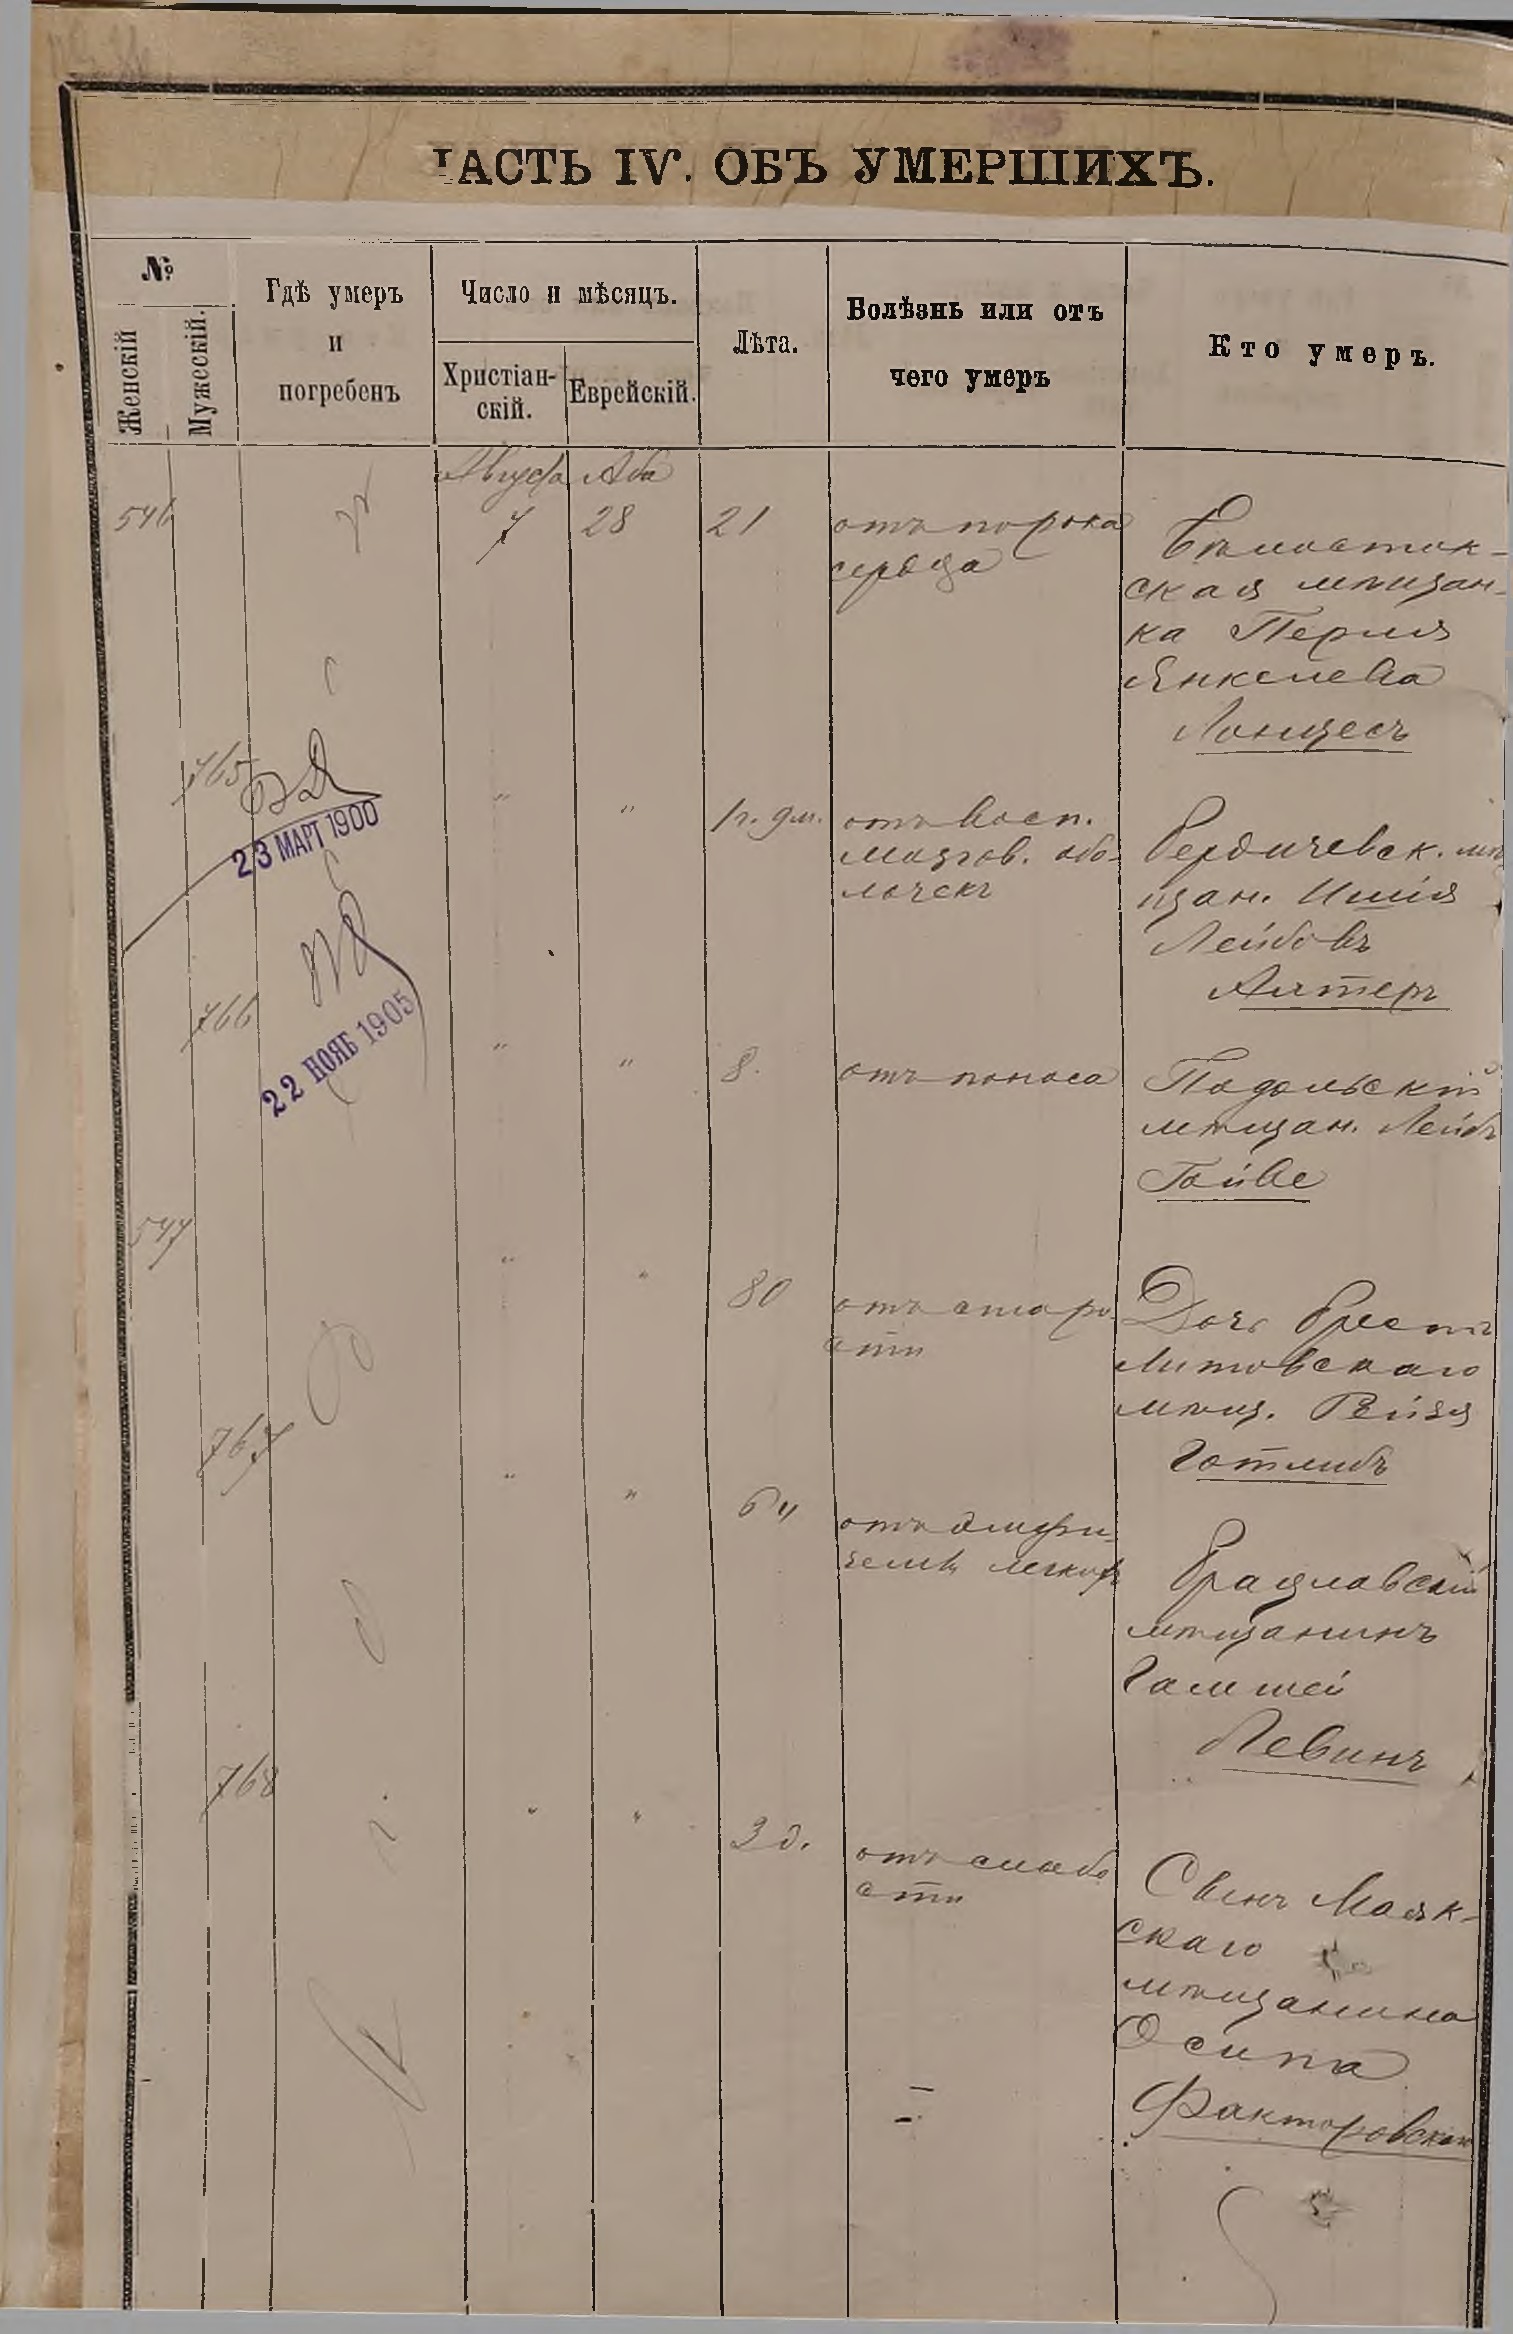 ЧАСТЬ IV. ОБЪ УМЕРШИХЪ.
№
Женскій
Мужескій.
Гдѣ умеръ
и
погребенъ
Число и мѣсяцъ.
Христіан-
скій.
Еврейскій.
Лѣта.
Болѣзнь или отъ
чего умеръ
Кто умеръ.
Августа Аба
546
7 28 21
отъ порока
сердца
Бѣлосток-
ская мѣщан-
ка Перля
Янкелева
765
23 МАРТ 1900
" " 1 г. 9 м.
отъ восп.
мозгов. обо-
лочекъ
Бердичевск. мѣ
щан. Шмія
Лейбовъ
Алтеръ
766
22 НОЯБ 1905
" " 8.
отъ поноса
Подольскій
мѣщан. Лейбъ
Гойве
547
" " 80
отъ старо-
сти
Дочь Брестъ
Литовскаго
мѣщ. Рейзя
Готлибъ
767
" " 64
отъ эмфи-
земы легкихъ
Брацлавскій
мѣщанинъ
Левинъ
768
" " 3 д.
отъ слабо
сти
Сынъ Маяк-
скаго
мѣщанина
Осипа
Факторовскаго